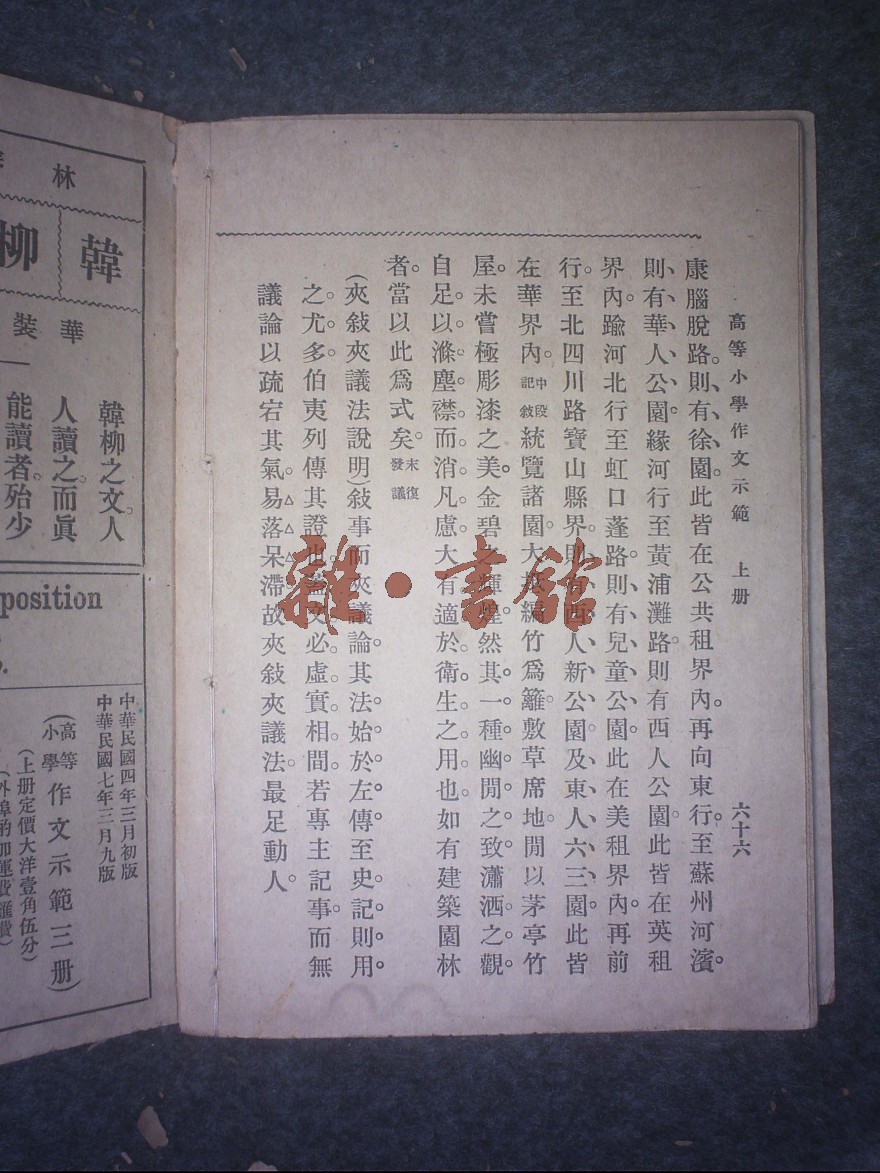 高等小學作文示範　上册　六十六
康腦脫路。則有徐園。此皆在公共租界內。再向東行。至蘇州河濱。
則有華人公園。緣河行至黃浦灘路。則有西人公園。此皆在英租
界內。踰河北行至虹口蓬路。則有兒童公園。此在美租界內。再前
行。至北四川路寶山縣界。則有西人新公園。及東人六三園。此皆
在華界內。中段記敍統覽諸園。大
編竹爲籬。敷草席地。閒以茅亭竹
屋。未嘗極彫漆之美。金碧之輝煌。然其一種幽閒之致。瀟洒之觀。
自足以滌塵襟。而消凡慮。大有適於衛生之用也。如有建築園林
者。當以此爲式矣。末復發議
(夾敍夾議法說明)敍事而夾議論。其法始於左傳。至史記則用
之尤多。伯夷列傳其證也。論文必虛實相間。若專主記事。而無
議論以疏宕其氣。易落呆滯。故夾敍夾議法。最足動人。
林
韓柳
華
裝
韓柳之文。人
人讀之。而眞
能讀者。殆少
position
中華民國四年三月初版
中華民國七年三月九版
(高等小學作文示範三册)
(上册定價大洋壹角伍分)
(外埠酌加運費匯費)
雜·書館